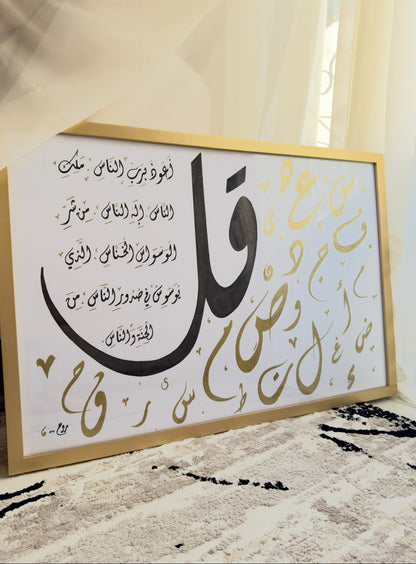 قل
أعوذ برب الناس ملك
الناس إله الناس من شر
الوسواس الخناس الذي
يوسوس في صدور الناس من
الجنة والناس